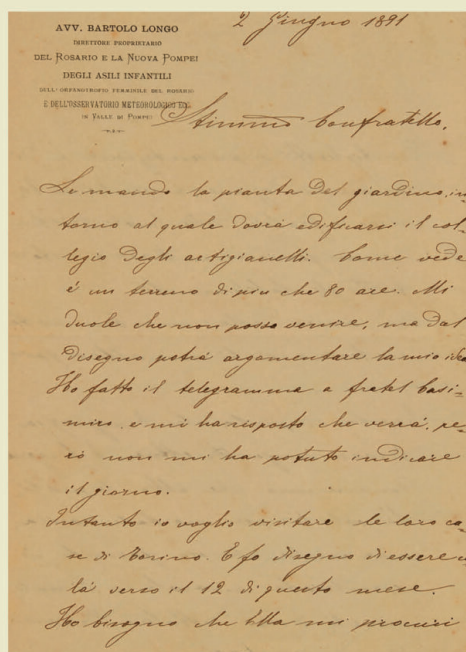 2 Giugno 1891
AVV. BARTOLO LONGO
DIRETTORE PROPRIETARIO
DEL ROSARIO E LA NUOVA POMPEI
DEGLI ASILI INFANTILI
DELL'ORFANOTROFIO FEMMINILE DEL ROSARIO
E DELL'OSSERVATORIO METEOROLOGICO ECC.
IN VALLE DI POMPEI
Stimmo Confratello,
Le mando la pianta del giardino, in-
torno al quale dovrà edificarsi il col-
legio degli artigianelli. Come vede
è un terreno di più che 80 are. Mi
duole che non posso venire, ma dal
disegno potrà argomentare la mia idea
Ho fatto il telegramma a fratel Casi-
miro, e mi ha risposto che verrà, pe-
rò non mi ha potuto indicare
il giorno.
Intanto io voglio visitare le loro ca-
se di Torino. E fo disegno di essere
là verso il 12 di questo mese.
Ho bisogno che Ella mi procuri